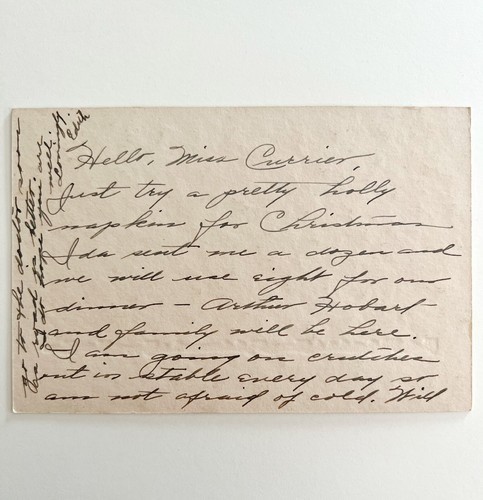 Hello, Miss Currier,
Just try a pretty holly
napkin for Christmas
Ida sent me a dozen and
we will use eight for our
dinner — Arthur Hobart
and family will be here.
I am going on crutches
out in stable every day so
am not afraid of cold. Will
go to the doctor soon
as road is better. are
well.
Edith